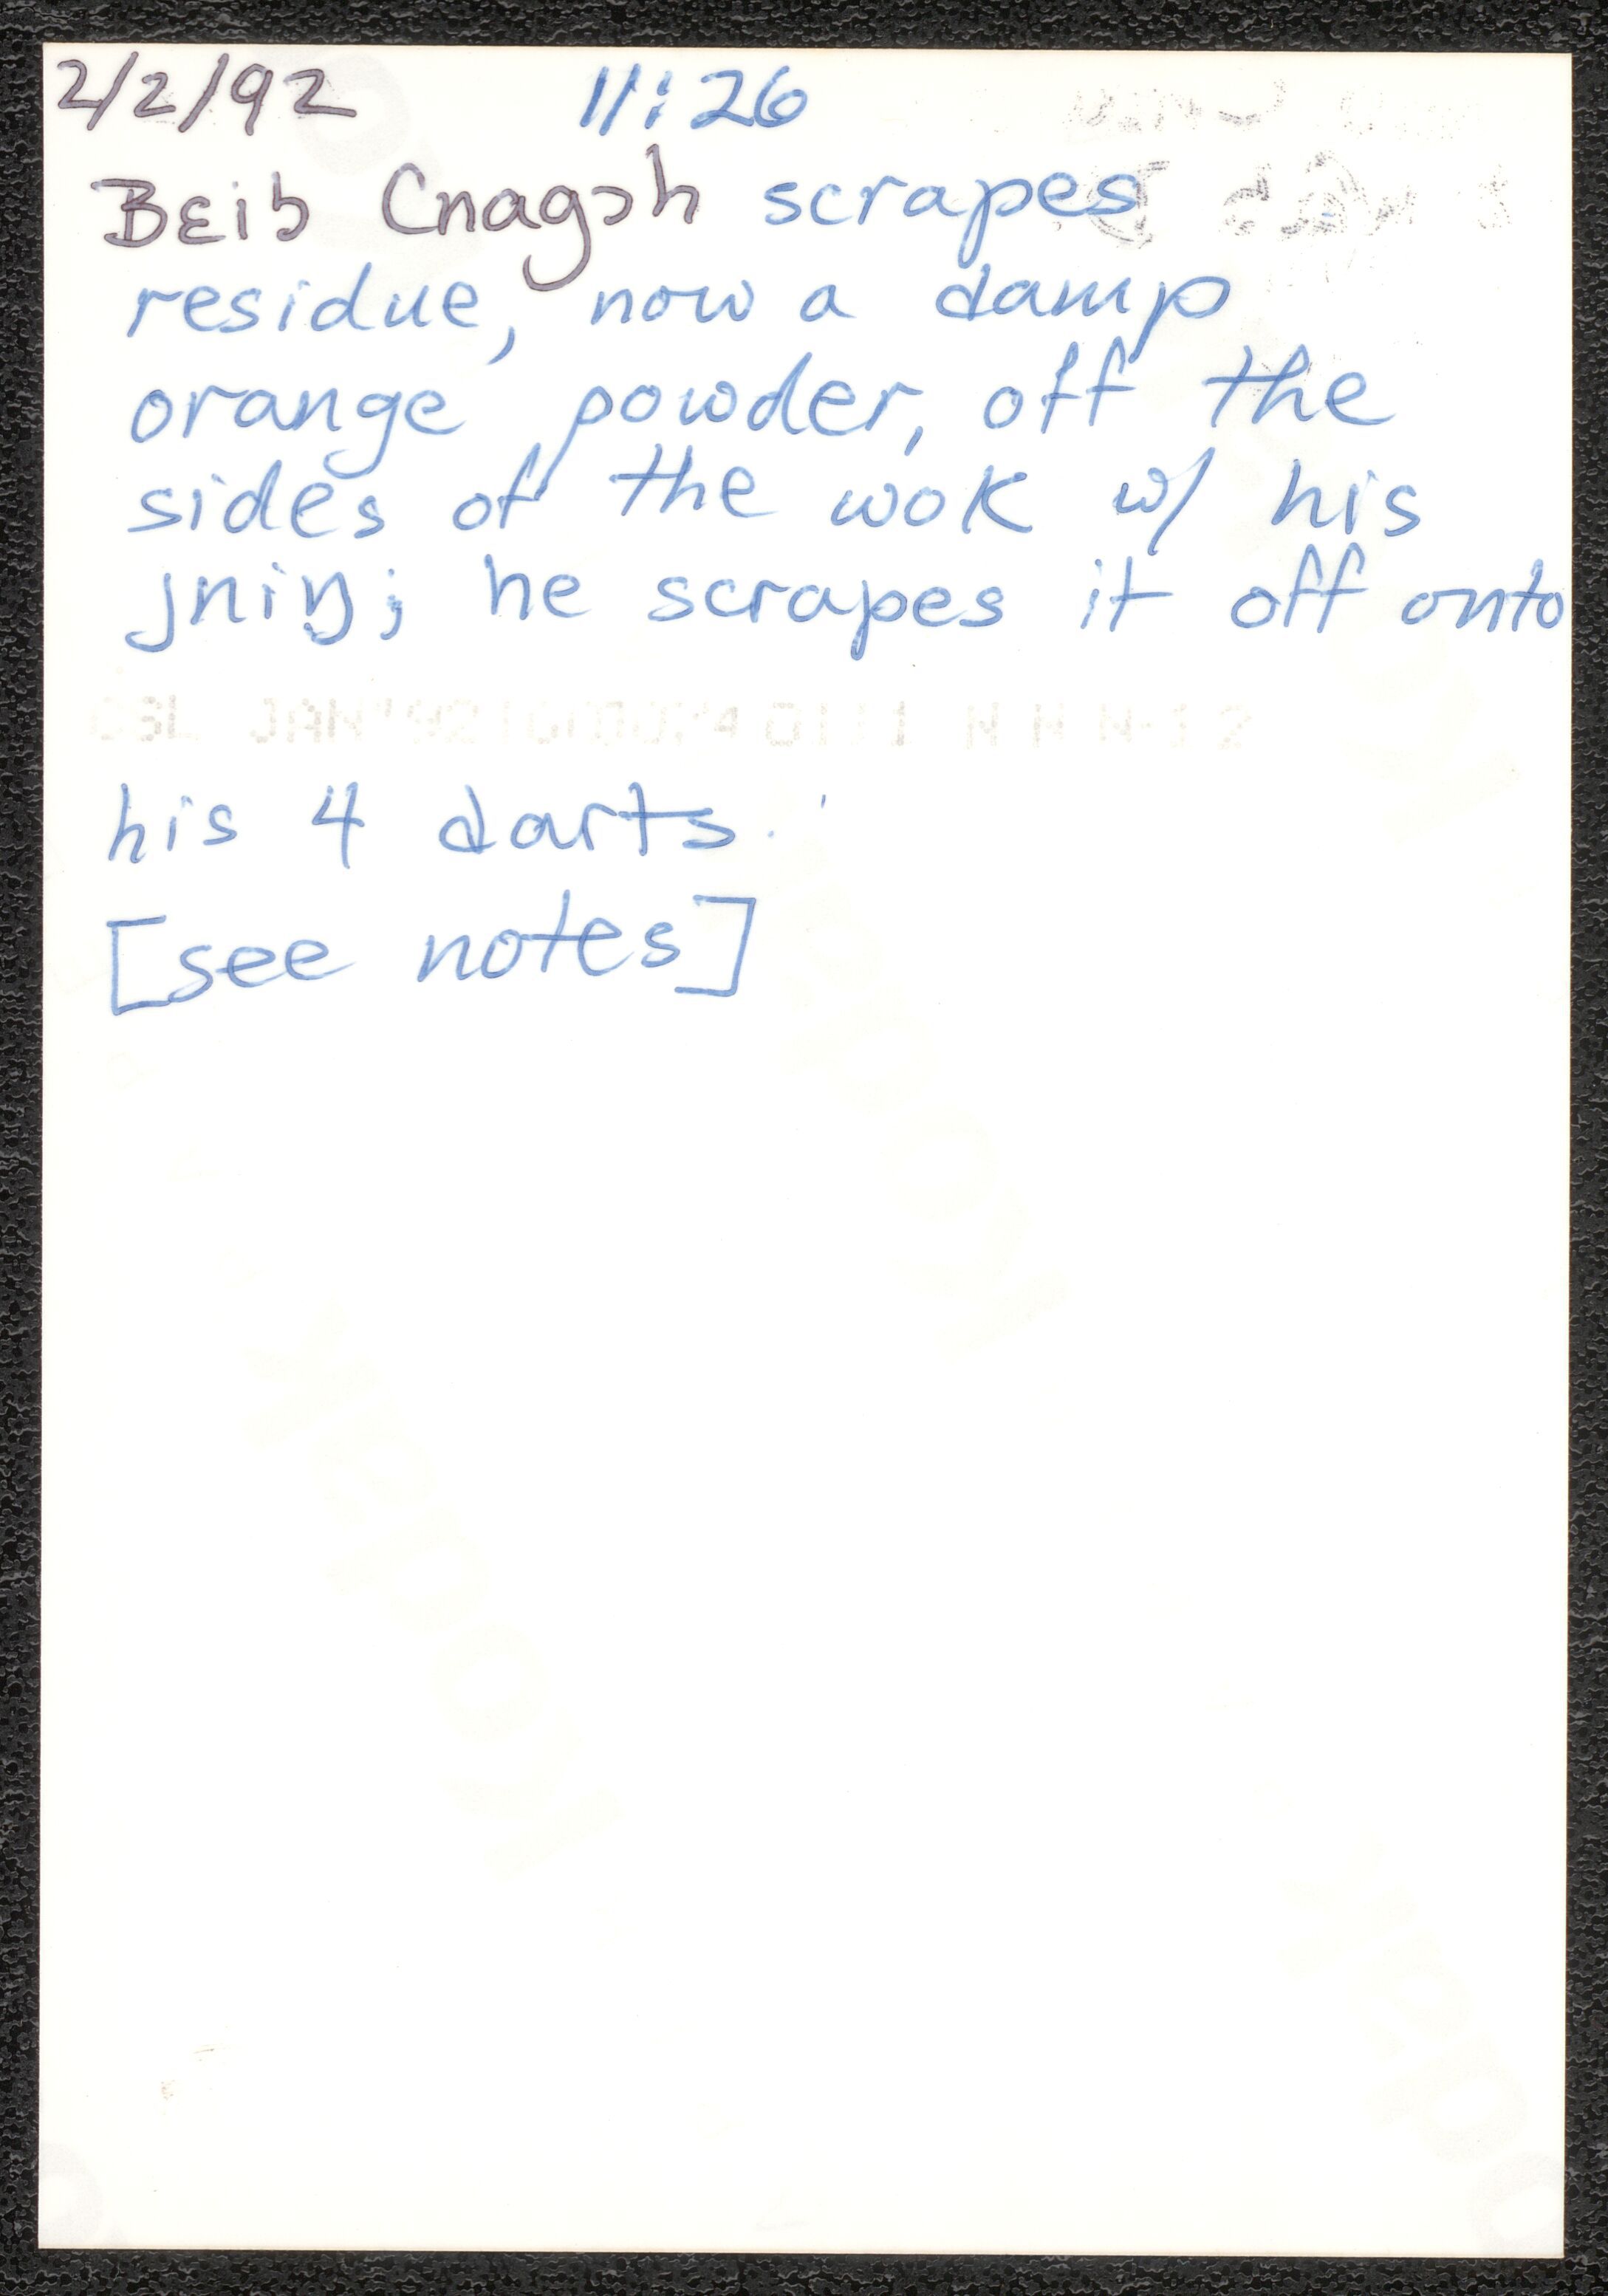 2/2/92 11:26
Bɛib Cnagɔh scrapes
residue, now a damp
orange powder, off the
sides of the wok w/ his
ȷniŋ; he scrapes it off onto
his 4 darts.
[see notes]